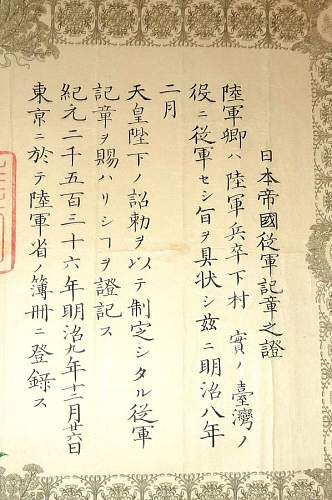 日本帝國從軍記章之證
陸軍卿ハ陸軍兵卒下村 實ノ臺灣ノ
役ニ從軍セシ旨ヲ具状シ玆ニ明治八年
二月
天皇陛下ノ詔勅ヲ以テ制定シタル從軍
記章ヲ賜ハリシヿヲ證記ス
紀元二千五百三十六年明治九年十二月廿六日
東京ニ於テ陸軍省ノ簿冊ニ登錄ス